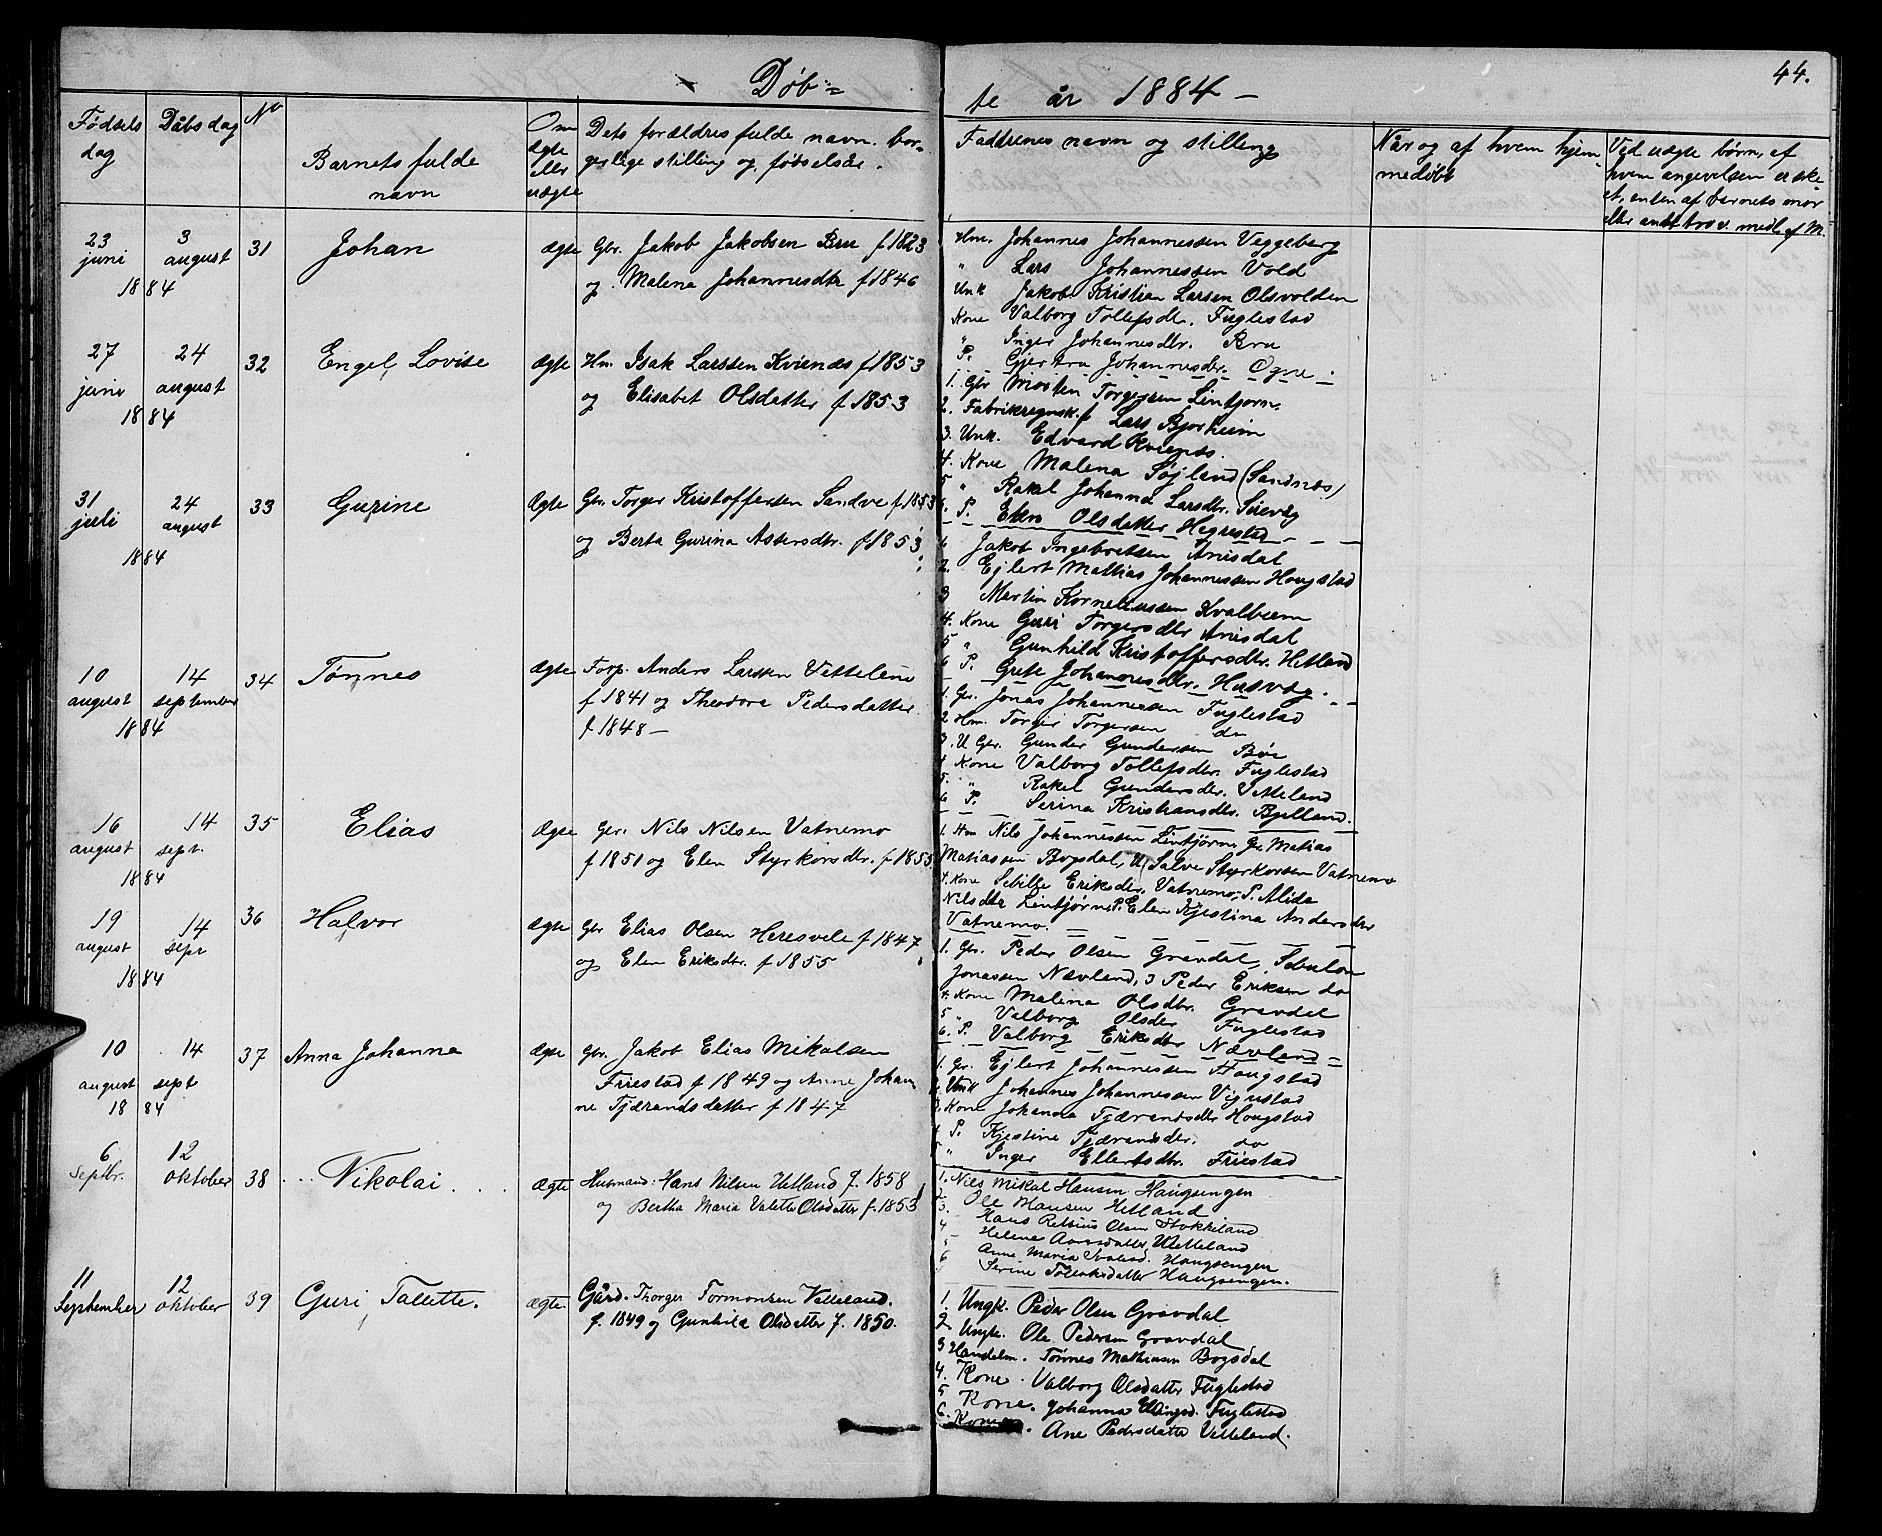 Døb=
te år 1884 –
44.
Fødsels
dag
Dåbsdag
No
Barnets fulde
navn
Om
ægte
eller
uægte
Dets forældres fulde navn. bor-
gerlige stilling og fødselsår.
Faddrenes navn og stilling
Når og af hvem hjem-
medøbt
Ved uægte børn, af
hvem angevelsen er ske-
et, enten af barnets mor
eller andt trov. medl. af M.
23 juni 3 august 1884
31
Johan
ægte
Gbr. Jakob Jakobsen Bru f 1823
og Malena Johannesdtr f 1846
Hm. Johannes Johannessen Veggeberg
" Lars Johannessen Vold
Unk Jakob Kristian Larsen Olsvolden
Kone Valborg Tollefsdtr. Fuglestad
" Inger Johannesdtr. Bru
P. Gjertra Johannesdtr. Ogne
27 juni 24 august 1884
32
Engel Lovise
ægte
Hm. Isak Larssen Kvienæs f 1853
og Elisabet Olsdatter f 1853
1. Gbr Mosten Torgersen Lintjørn.
2. Fabrikregnsk.f Lars Bjorheim
3. Unk. Edvard Kvienæs.
4. Kone Malena Søjland (Sandnæs)
5 " Rakel Johanna Larsdtr. Sirevåg
6. P. Elen Olsdatter Hegrestad
31 juli 24 august 1884
33
Gurine
ægte
Gbr. Torger Kristoffersen Sandve f 1853
og Berta Gurina Assersdtr. f 1853
Jakob Ingebretsen Årrisdal
2. Ejlert Mathias Johannessen Hougstad
3 Martin Korneliussen Kvalbein
4. Kone Guri Torgersdtr Årrisdal
5 " Gunhild Kristoffersdtr. Hetland
6 P. Grete Johannesdtr. Husvåg
10 august 14 september 1884
34
Tønnes
ægte
Forp. Anders Larssen Vetteland
f 1841 og Theodora Pedersdatter
f 1848 –
1. Gr. Jonas Johannessen Fuglestad
2 Hm. Torger Torgersen do
3. U Gbr. Gunder Gundersen Bøe
4 Kone Valborg Tollefsdtr. Fuglestad
5. " Rakel Gundersdtr. Vetteland
6 P. Serina Kristiansdtr. Bjelland.
16 august 14 sept. 1884
35
Elias
ægte
Gbr. Nils Nilsen Vatnemo
f 1851 og Elen Styrkorsdtr. f 1855
1. Hm Nils Johannessen Lintjørn Gr. Matias
Matiassen Bogsdal, U. Salve Styrkorsen Vatnemo
4. Kone Sebille Eriksdtr. Vatnemo, P. Alida
Nilsdtr Lintjørn P. Elen Kjestina Andersdtr
Vatnemo.
19 august 14 sept 1884
36
Halvor
ægte
Gbr Elias Olsen Heresvele f 1847
og Elen Eriksdtr. f 1855
1. Gr. Peder Olsen Gravdal, Sebulon
Jonassen Nævland, 3 Peder Eriksen do
4. Kone Malena Olsdtr. Gravdal
5 " Valborg Olsdtr Fuglestad
6. P. Valborg Eriksdtr Nævland
10 august 14 sept 1884
37
Anna Johanna
ægte
Gbr. Jakob Elias Mikalsen
Friestad f 1849 og Anne Johan
ne Tjærandsdatter f 1847
1. Gr. Ejlert Johannessen Hougstad
2. Unk Johannes Johannessen Vigrestad
3. Kone Johanna Tjærandsdtr Hougstad
4 P. Kjestine Tjærandsdtr. do
5 " Inger Ellertsdtr. Friestad
6 Septbr. 12 oktober
38
Nikolai
ægte
Husmand: Hans Nilsen Hetland f. 1858
og Bertha Maria Valette Olsdatter f. 1853
1. Nils Mikal Hansen Haugsengen
2. Ole Hansen Hetland
3. Hans Olsen Stokkeland
4 Helene Vetteland
5 Anne Maria Haugsengen
6 Serine Tollaksdatter Haugsengen.
11 September 12 oktober
39
Guri Tallette.
ægte.
Gård. Thorger Tormodsen Vetteland.
f. 1849 og Gunhild Olsdatter f. 1850.
1. Ungk. Peder Olsen Gravdal
2. Ungk. Ole Pedersen Gravdal
3 Handelm. Tønnes Mathiasen Bogsdal
4. Kone. Valborg Olsdatter Fuglestad
5 Kone. Johanna Ellingsd. Fuglestad
6. Kone. Ane Pedersdatter Vetteland.